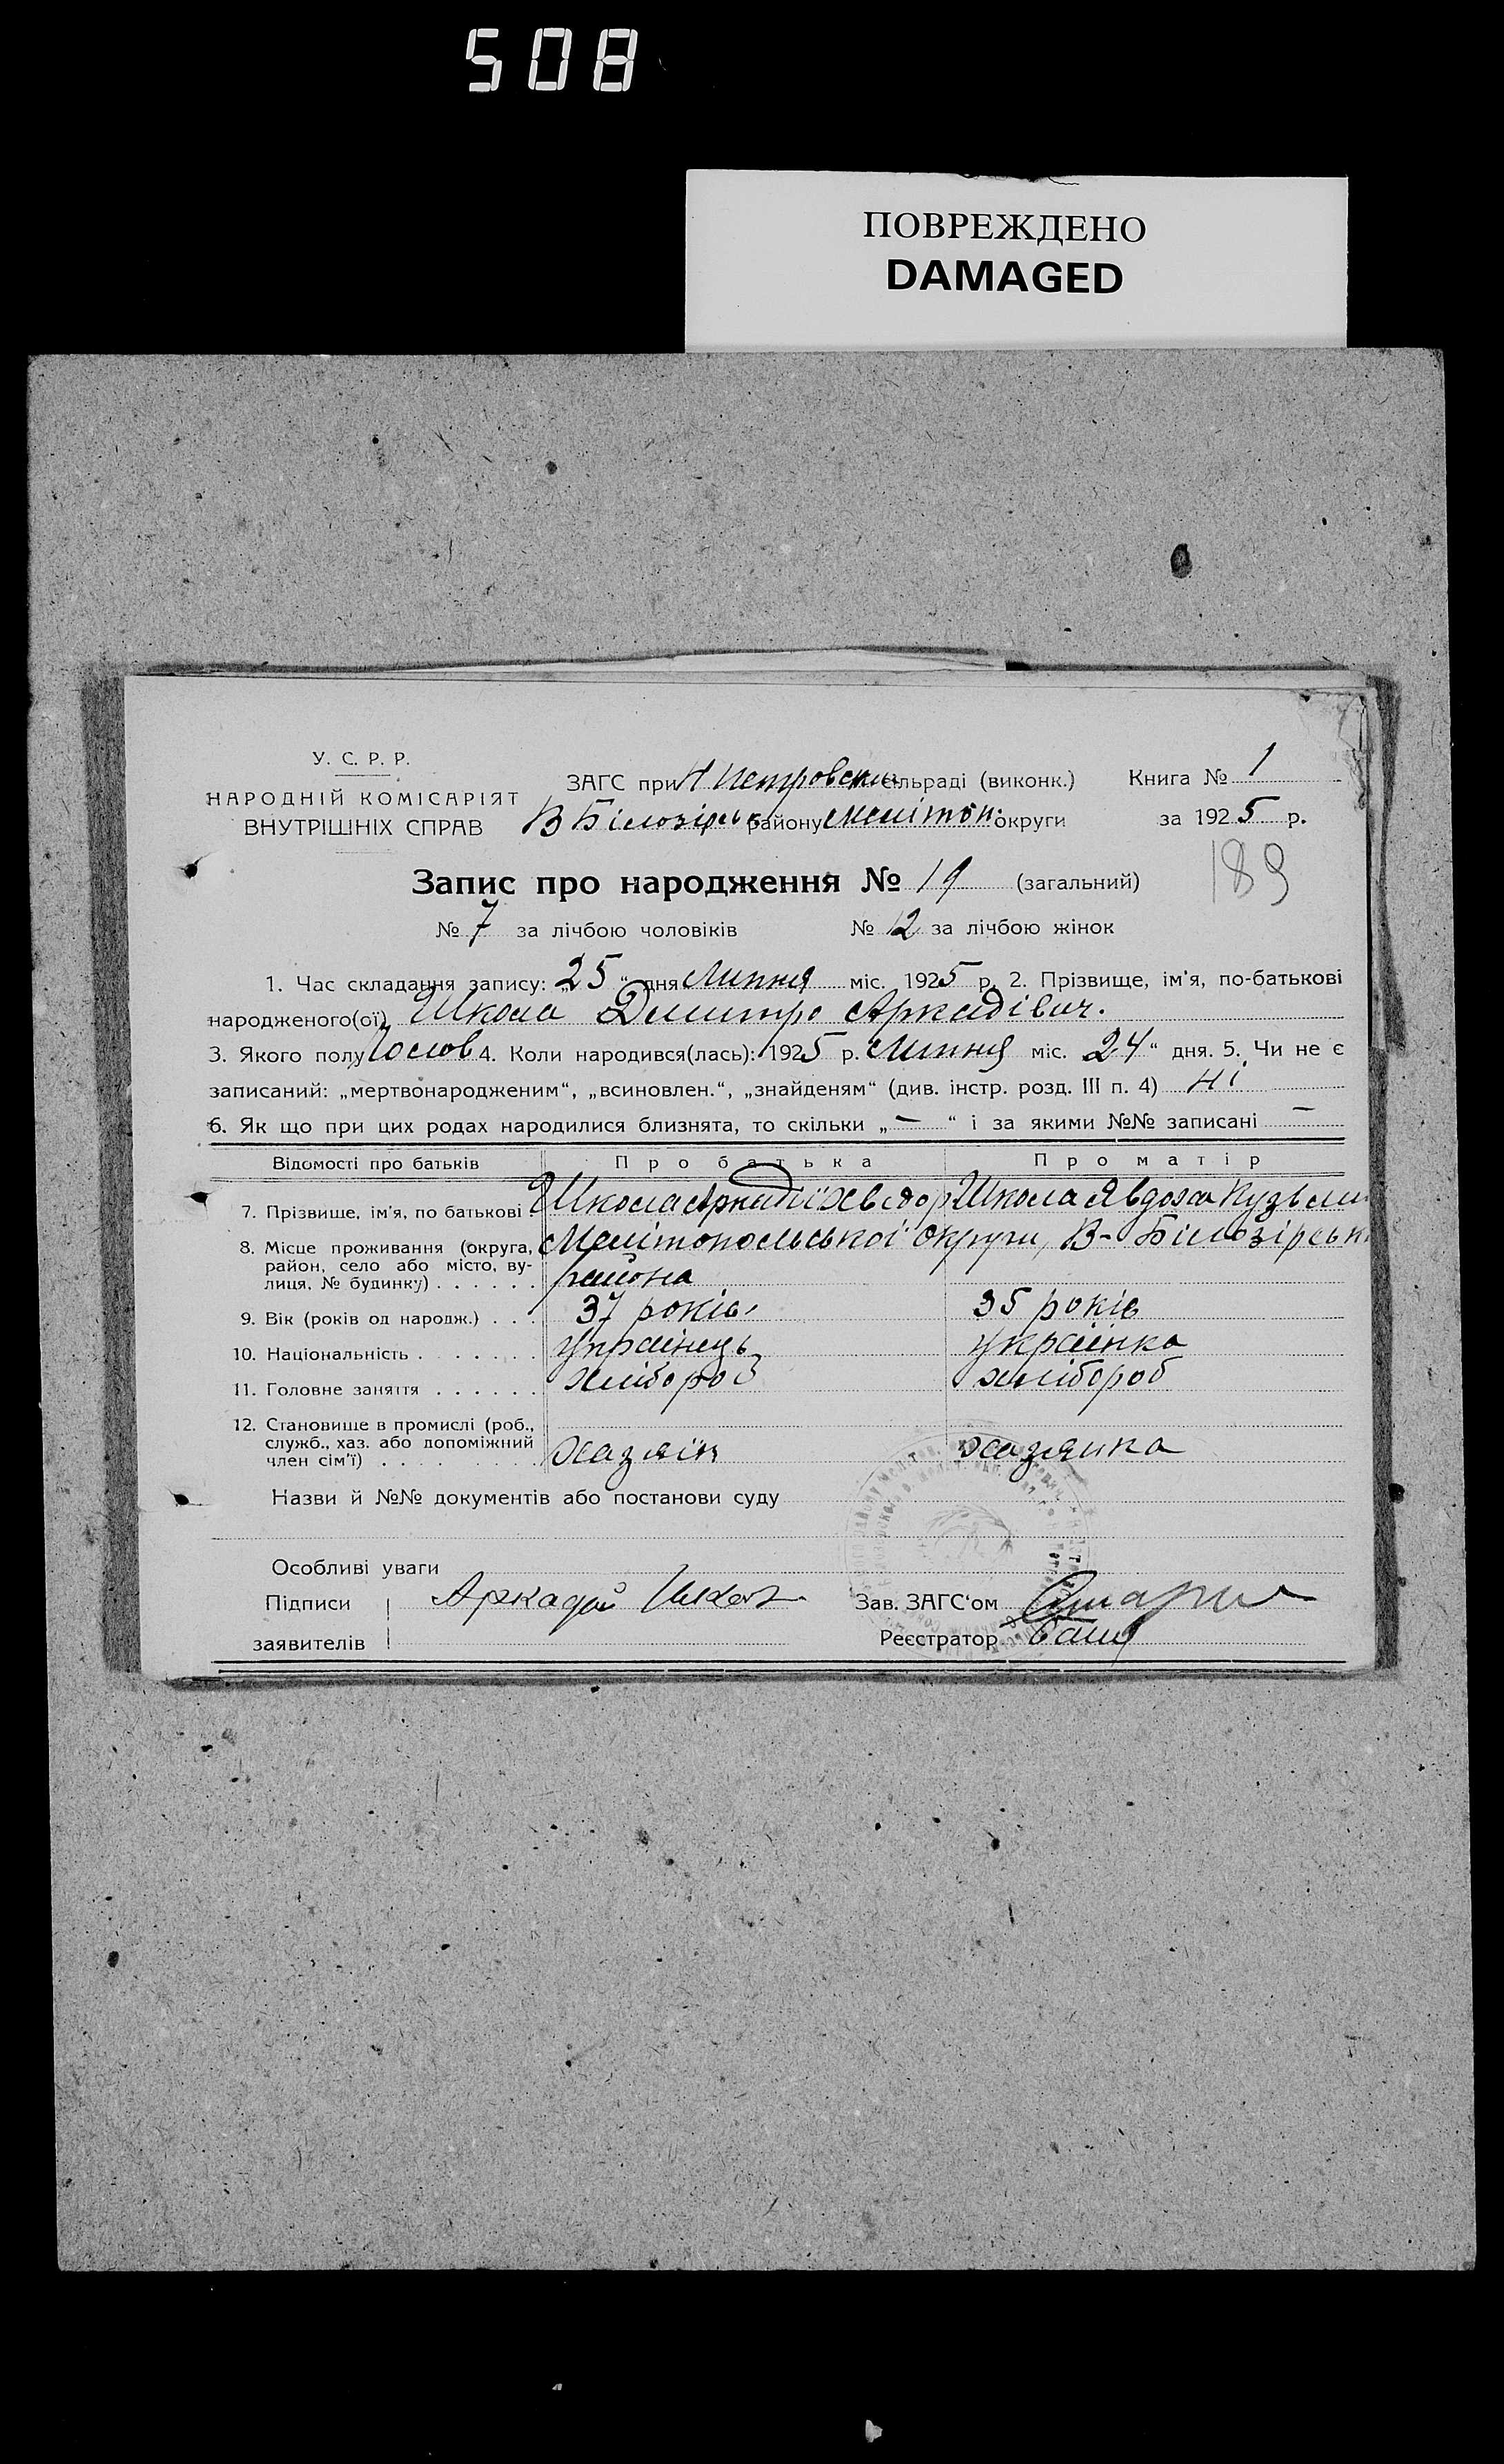 508
ПОВРЕЖДЕНО
DAMAGED
У. С. Р. Р.
НАРОДНІЙ КОМІСАРІЯТ
ВНУТРІШНІХ СПРАВ
ЗАГС при Н Петровский сільраді (виконк.)
Книга № 1
В Білозірськ району Меліточ. округи
за 1925 р.
189
Запис про народження № 19 (загальний)
№ 7 за лічбою чоловіків № 12 за лічбою жінок
1. Час складання запису: „25“ дня Липня міс. 1925 р. 2. Прізвище, ім'я, по-батькові
народженого(ої) Школа Дмитро Аркадівич.
3. Якого полу Чолов 4. Коли народився(лась): 1925 р. Липня міс. 24“ дня. 5. Чи не є
записаний: „мертвонародженим“, „всиновлен.“, „знайденям“ (див. інстр. розд. III п. 4) Ні
6. Як що при цих родах народилися близнята, то скільки „—“ і за якими №№ записані —
Відомості про батьків Про батька Про матір
7. Прізвище, ім'я, по батькові Школа Аркадій Хведор Школа Явдоха Кузьми
8. Місце проживання (округа, Мелітопольської округи, В-Білозірськ
район, село або місто, ву-
лиця, № будинку) . . . . . . района
9. Вік (років од народж.) . . . 37 років 35 років
10. Національність . . . . . . Українець Українка
11. Головне заняття . . . . . . хлібороб хлібороб
12. Становище в промислі (роб.,
служб., хаз. або допоміжний
член сім'ї) . . . . . . . . Хазяїн Хазяика
Назви й №№ документів або постанови суду
Особливі уваги
Підписи Аркадий Школа
Зав. ЗАГС'ом
заявителів
Реєстратор